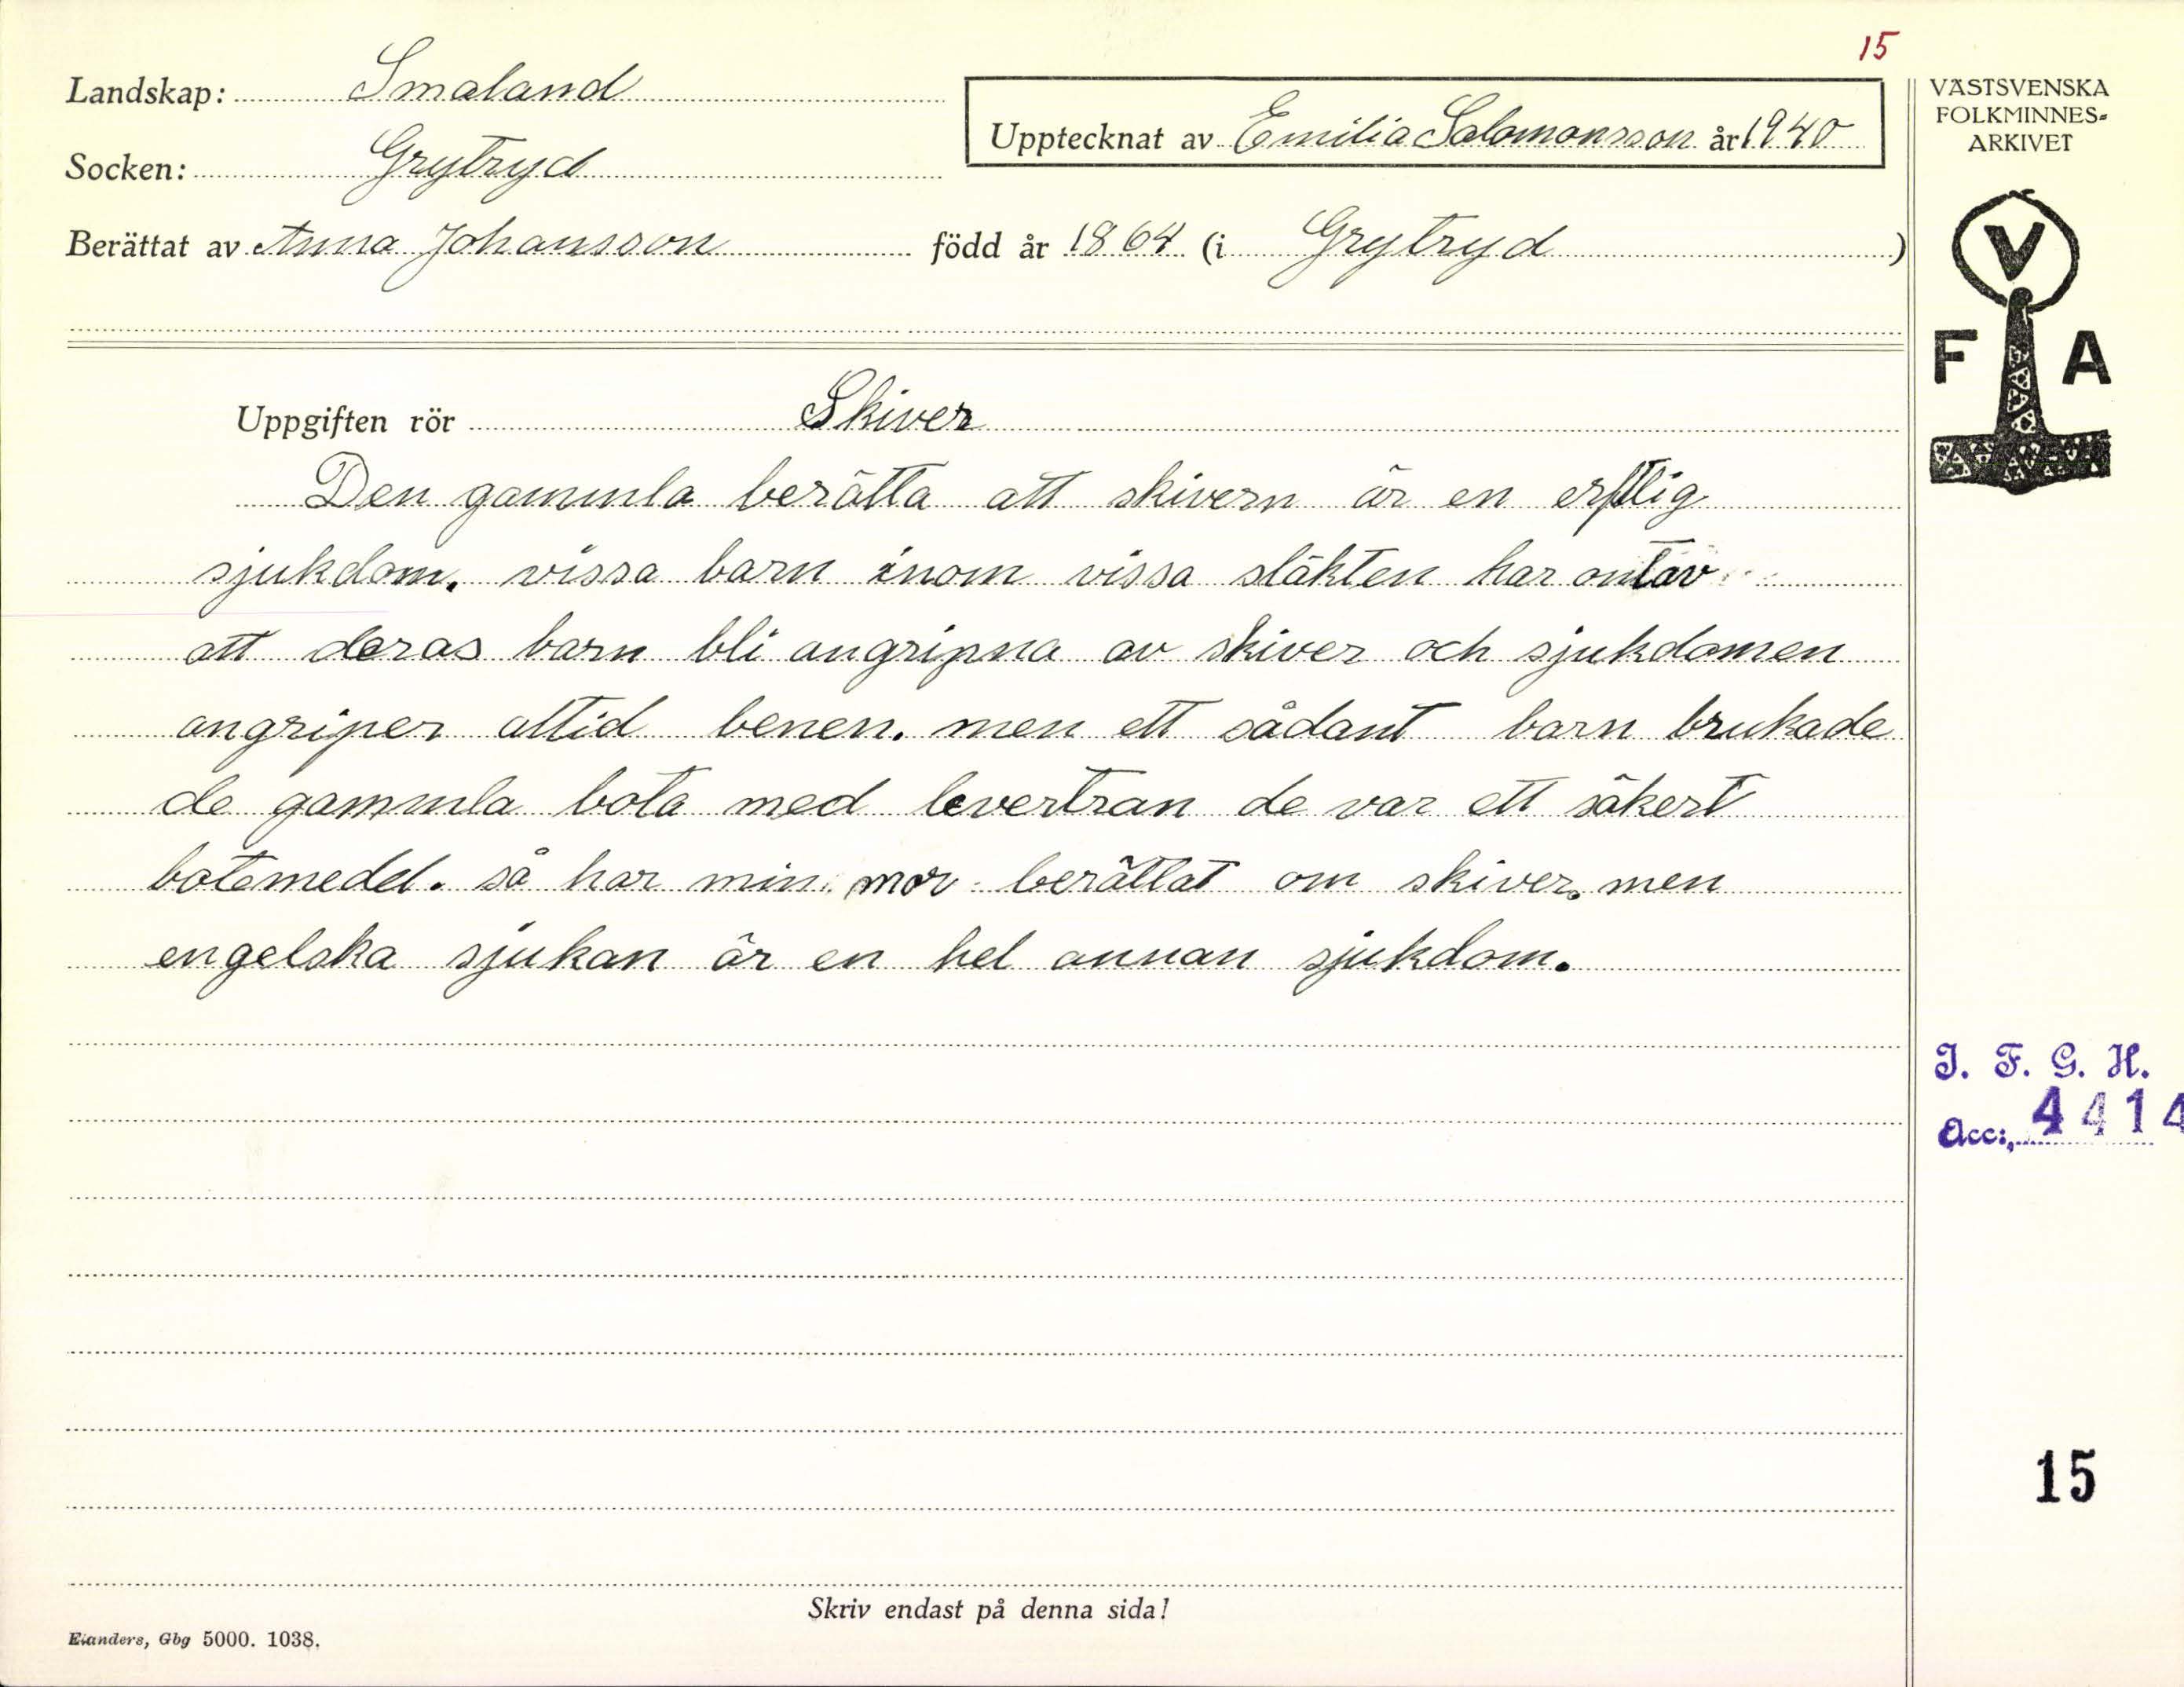 15
Landskap: Smaland
Upptecknat av Emilia Salomonsson år 1940
Socken: Grytryd
Berättat av Anna Johansson född år 1864 (i Grytryd)
Uppgiften rör Skiver
Den gammla berätta att skivern är en erftlig
sjukdom. vissa barn inom vissa släkten har ontav
att deras barn bli angripna av skiver och sjukdomen
angriper altid benen. men ett sådant barn brukade
de gammla bota med levertran de var ett säkert
botemedel. så har min mor berättat om skiver. men
engelska sjukan är en hel annan sjukdom.
Skriv endast på denna sida!
Elanders, Gbg 5000. 1038.
VÄSTSVENSKA
FOLKMINNES-
ARKIVET
V
F A
I. F. G. H.
Acc:, 4414
15